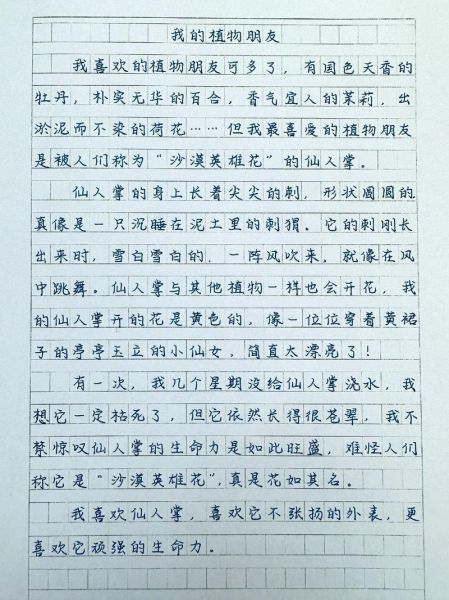 我的植物朋友
我喜欢的植物朋友可多了，有国色天香的
牡丹，朴实无华的百合，香气宜人的茉莉，出
淤泥而不染的荷花……但我最喜爱的植物朋友
是被人们称为“沙漠英雄花”的仙人掌。
仙人掌的身上长着尖尖的刺，形状圆圆的
真像是一只沉睡在泥土里的刺猬。它的刺刚长
出来时，雪白雪白的，一阵风吹来，就像在风
中跳舞。仙人掌与其他植物一样也会开花，我
的仙人掌开的花是黄色的，像一位位穿着黄裙
子的亭亭玉立的小仙女，简直太漂亮了！
有一次，我几个星期没给仙人掌浇水，我
想它一定枯死了，但它依然长得很苍翠，我不
禁惊叹仙人掌的生命力是如此旺盛，难怪人们
称它是“沙漠英雄花”，真是花如其名。
我喜欢仙人掌，喜欢它不张扬的外表，更
喜欢它顽强的生命力。